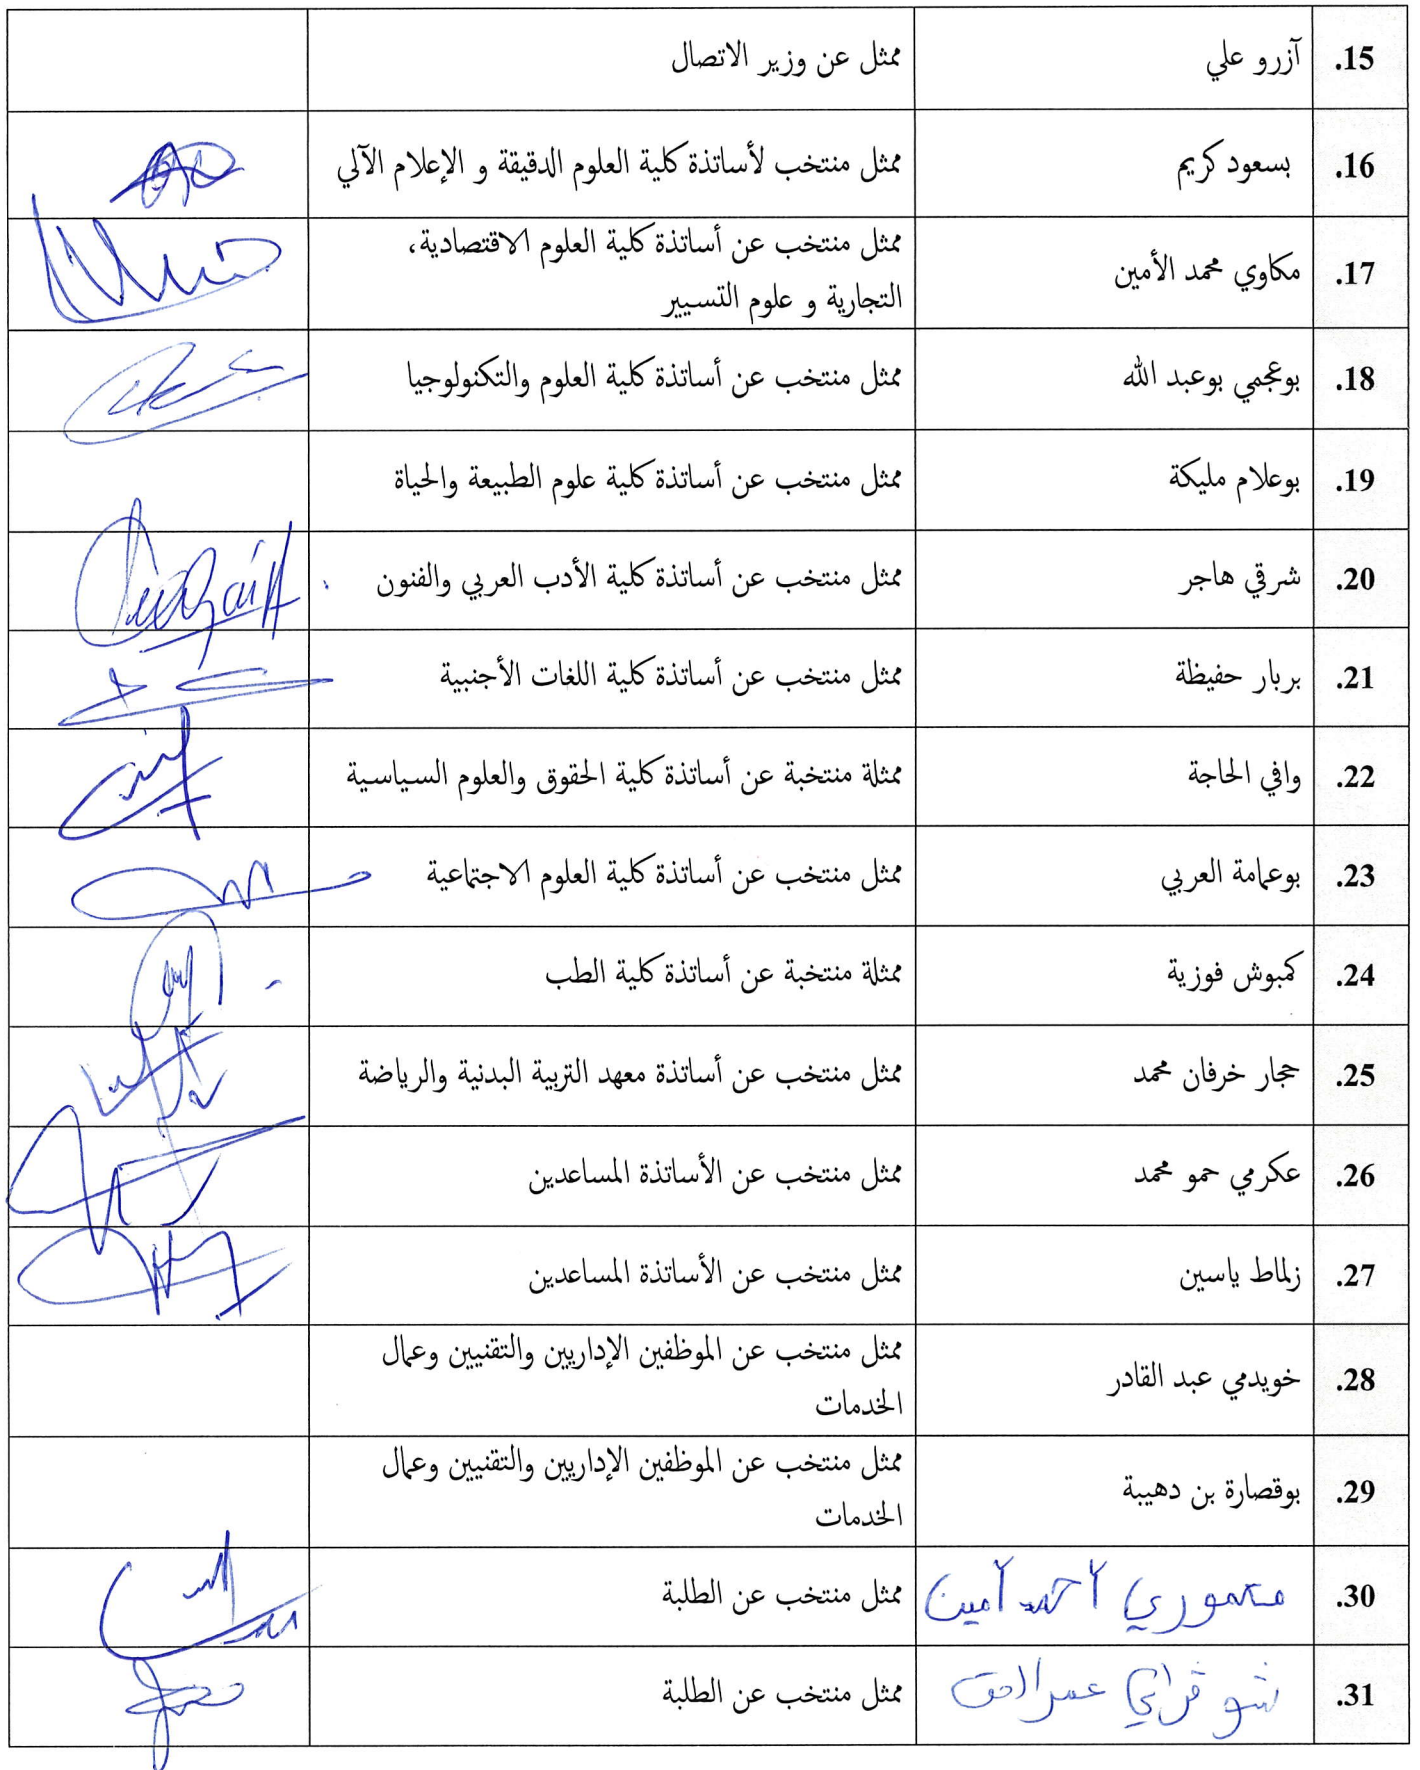 15. آزرو علي ممثل عن وزير الاتصال
16. بسعود كريم ممثل منتخب لأساتذة كلية العلوم الدقيقة و الإعلام الآلي
17. مكاوي محمد الأمين ممثل منتخب عن أساتذة كلية العلوم الاقتصادية،
التجارية و علوم التسيير
18. بوعجمي بوعبد الله ممثل منتخب عن أساتذة كلية العلوم والتكنولوجيا
19. بوعلام مليكة ممثل منتخب عن أساتذة كلية علوم الطبيعة والحياة
20. شرقي هاجر ممثل منتخب عن أساتذة كلية الأدب العربي والفنون
21. بربار حفيظة ممثل منتخب عن أساتذة كلية اللغات الأجنبية
22. وافي الحاجة ممثلة منتخبة عن أساتذة كلية الحقوق والعلوم السياسية
23. بوعمامة العربي ممثل منتخب عن أساتذة كلية العلوم الاجتماعية
24. كمبوش فوزية ممثلة منتخبة عن أساتذة كلية الطب
25. حجار خرفان محمد ممثل منتخب عن أساتذة معهد التربية البدنية والرياضة
26. عكرمي حمو محمد ممثل منتخب عن الأساتذة المساعدين
27. زلماط ياسين ممثل منتخب عن الأساتذة المساعدين
28. خويدمي عبد القادر ممثل منتخب عن الموظفين الإداريين والتقنيين وعمال
الخدمات
29. بوقصارة بن دهيبة ممثل منتخب عن الموظفين الإداريين والتقنيين وعمال
الخدمات
30. معموري أحمد أمين ممثل منتخب عن الطلبة
31. ممثل منتخب عن الطلبة